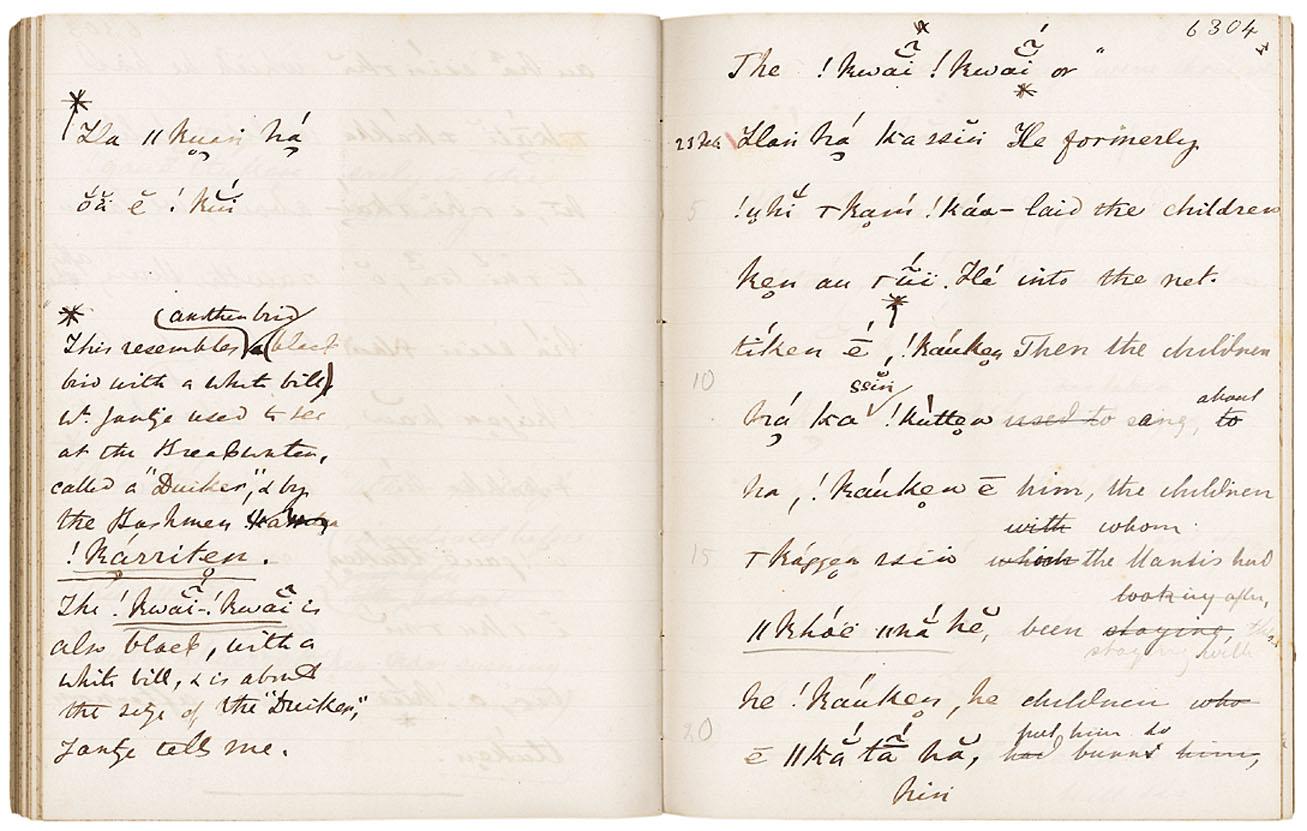 Ha ǁkuan há̤
ŏă ĕ !kŭi
(another bird
This resembles a (black
bird with a white bill)
wh. Jantje used to see
at the Breakwater,
called a "Duiker", & by
the Bushmen
!kárriten.
The !kwãĭ-!kwãĭ is
also black, with a
white bill, & is about
the size of the "Duiker",
Jantje tells me.
6304
The !kwãĭ !kwãĭ or "
Han há̤ ka ssĭn He formerly
5 laid the children
au into the net.
tíken é, !káuken Then the children
10 ssĭn
há̤ ka !kútten used to sing, about to
ha, !káuken ē him, the children
with whom
15 ssin which the Mantis had
looking after,
ǁkhóë ǁná hĕ, been staying,
staying with
he !káuken, he children who
put him to
20 ē ǁkắ tã́ hă, had burnt him,
hin